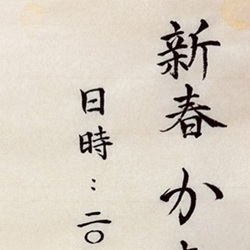 新春か
日時：二〇